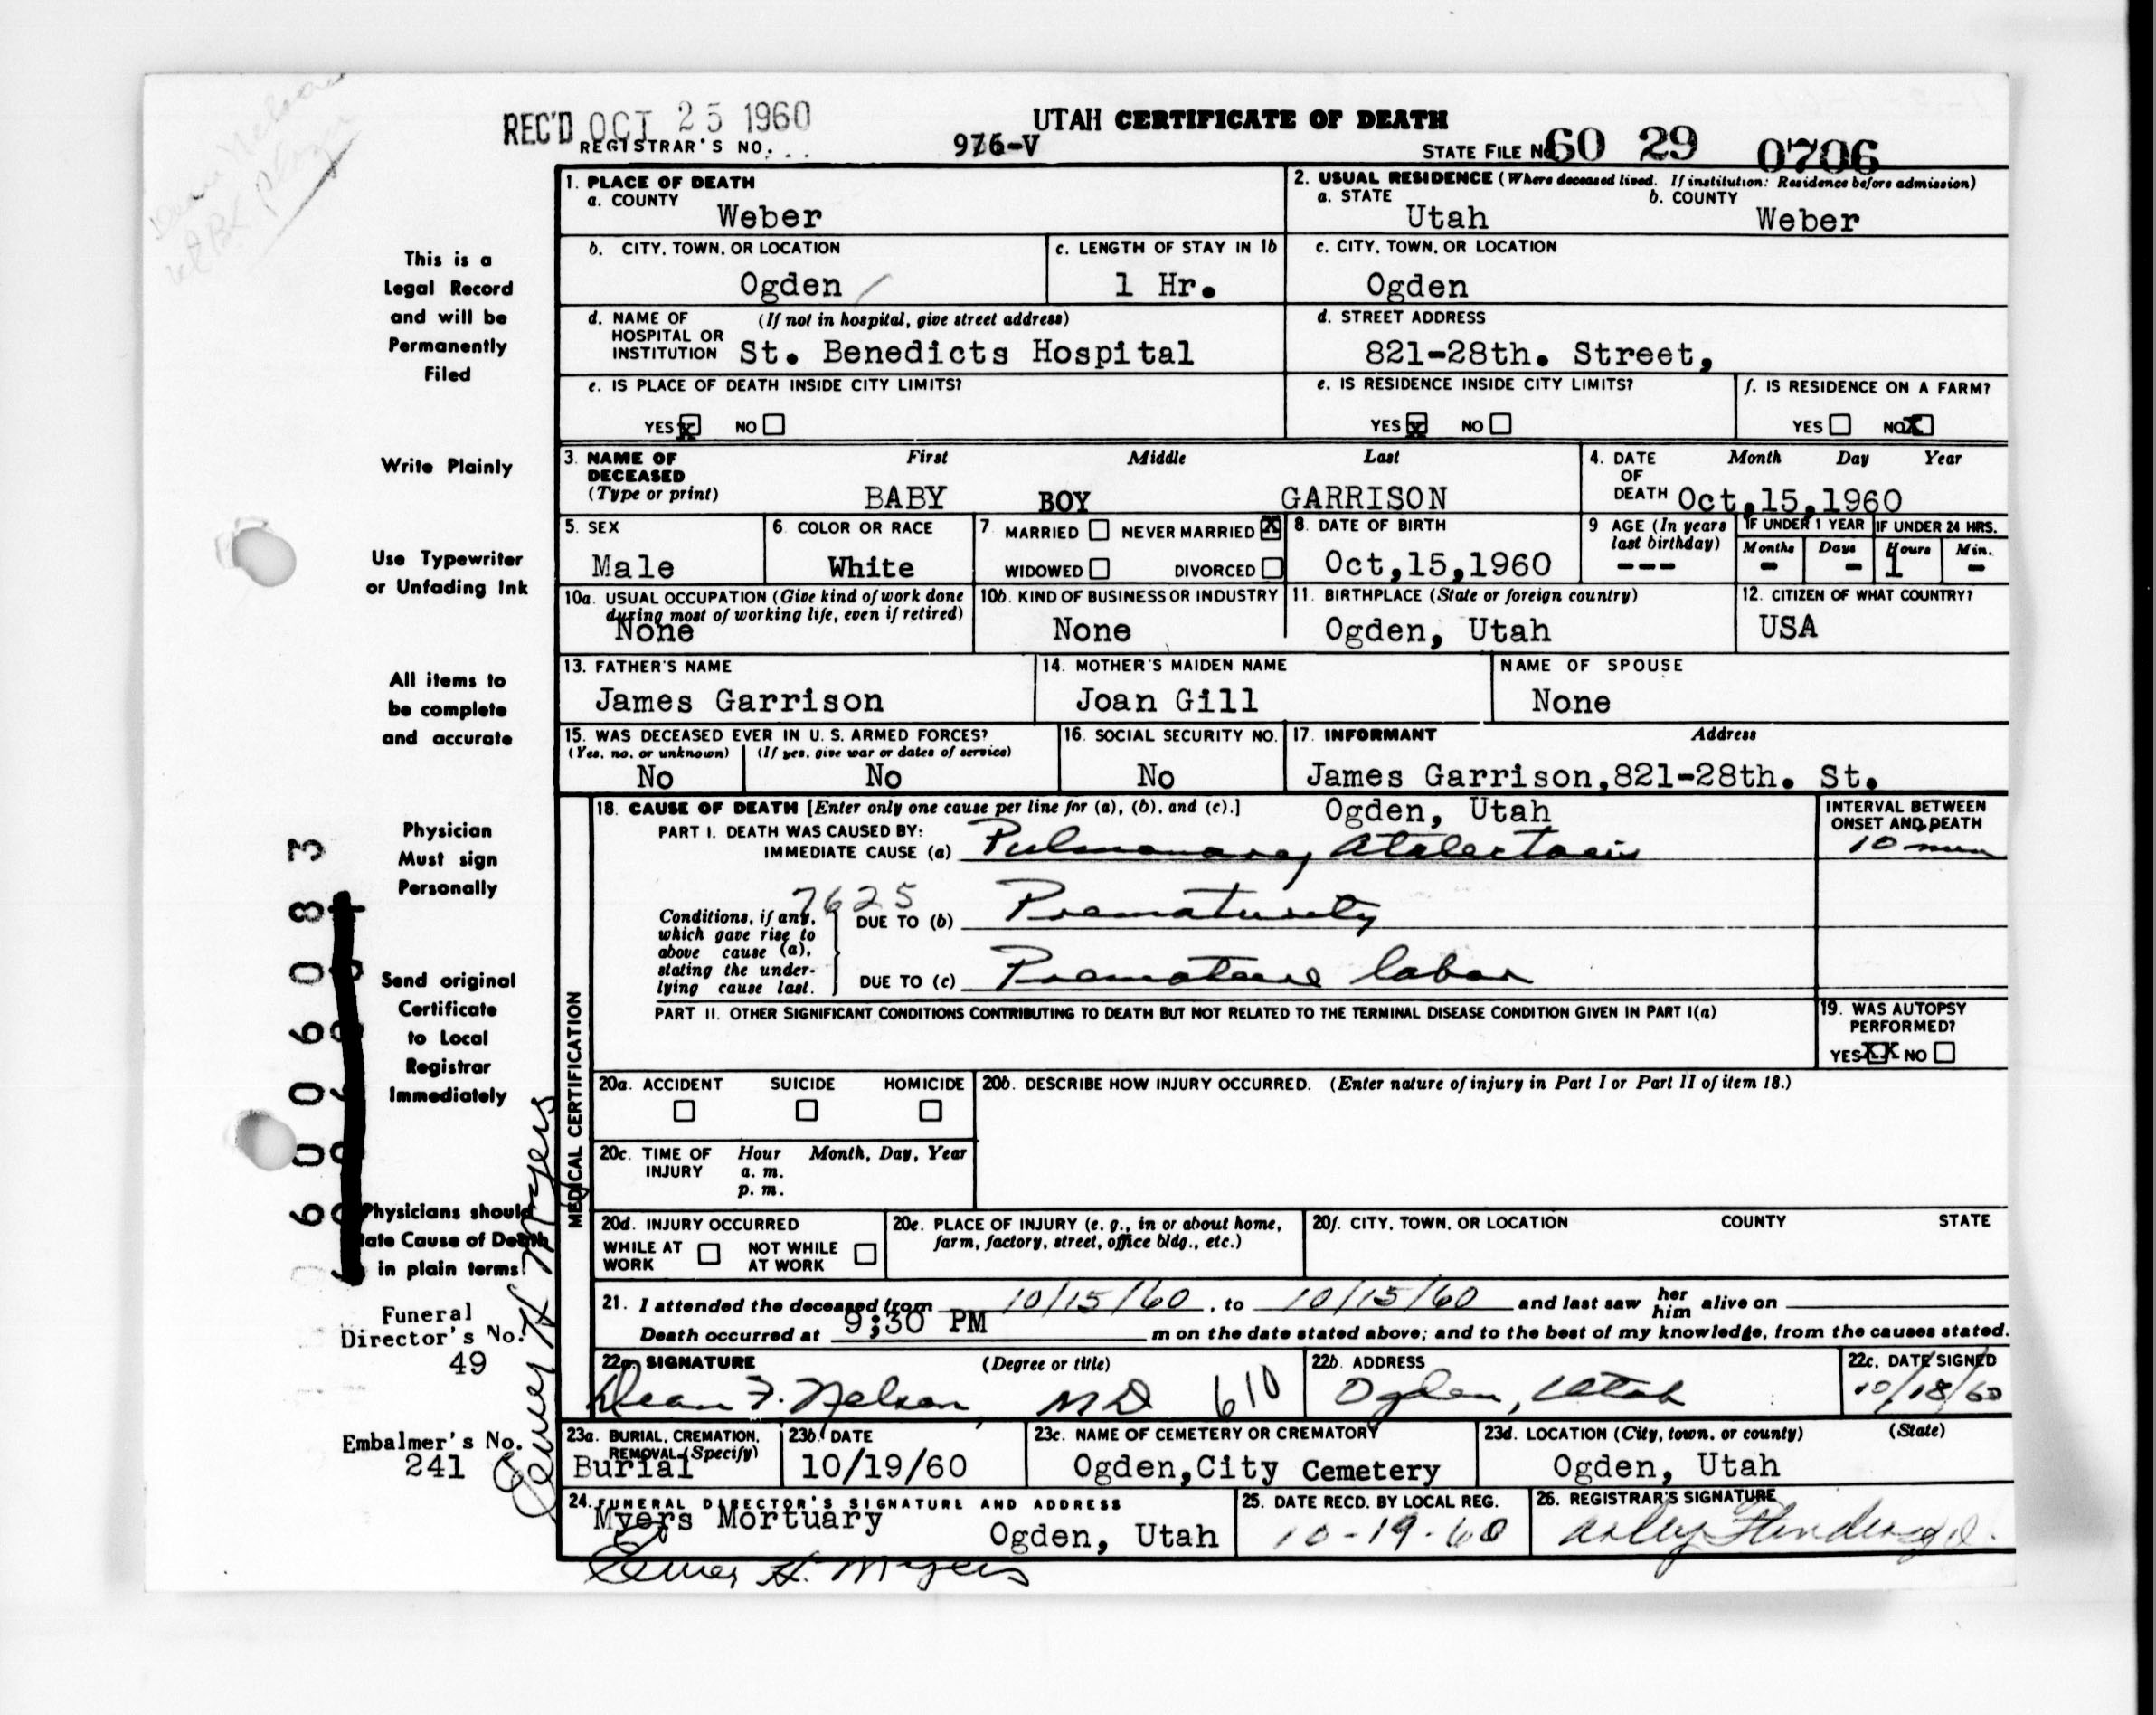 REC'D OCT 25 1960
UTAH CERTIFICATE OF DEATH
REGISTRAR'S NO. . . 976-V
STATE FILE NO. 60 29 0706
1. PLACE OF DEATH
a. COUNTY
Weber
2. USUAL RESIDENCE (Where deceased lived. If institution: Residence before admission)
a. STATE b. COUNTY
Utah Weber
b. CITY, TOWN, OR LOCATION
Ogden
c. LENGTH OF STAY IN 1b
1 Hr.
c. CITY, TOWN, OR LOCATION
Ogden
d. NAME OF (If not in hospital, give street address)
HOSPITAL OR
INSTITUTION St. Benedicts Hospital
d. STREET ADDRESS
821-28th. Street,
e. IS PLACE OF DEATH INSIDE CITY LIMITS?
YES X NO
e. IS RESIDENCE INSIDE CITY LIMITS?
YES X NO
f. IS RESIDENCE ON A FARM?
YES NO X
3. NAME OF DECEASED (Type or print)
First Middle Last
BABY BOY GARRISON
4. DATE OF DEATH
Month Day Year
Oct,15,1960
5. SEX
Male
6. COLOR OR RACE
White
7. MARRIED NEVER MARRIED X
WIDOWED DIVORCED
8. DATE OF BIRTH
Oct,15,1960
9 AGE (In years last birthday)
---
IF UNDER 1 YEAR
Months Days
- -
IF UNDER 24 HRS.
Hours Min.
1 -
10a. USUAL OCCUPATION (Give kind of work done
during most of working life, even if retired)
None
10b. KIND OF BUSINESS OR INDUSTRY
None
11. BIRTHPLACE (State or foreign country)
Ogden, Utah
12. CITIZEN OF WHAT COUNTRY?
USA
13. FATHER'S NAME
James Garrison
14. MOTHER'S MAIDEN NAME
Joan Gill
NAME OF SPOUSE
None
15. WAS DECEASED EVER IN U. S. ARMED FORCES?
(Yes, no, or unknown) (If yes, give war or dates of service)
No No
16. SOCIAL SECURITY NO.
No
17. INFORMANT Address
James Garrison,821-28th. St.
Ogden, Utah
MEDICAL CERTIFICATION
18. CAUSE OF DEATH [Enter only one cause per line for (a), (b), and (c).]
PART I. DEATH WAS CAUSED BY:
IMMEDIATE CAUSE (a) Pulmonary Atalectasis
INTERVAL BETWEEN
ONSET AND DEATH
10 min
7625
Conditions, if any,
which gave rise to
above cause (a),
stating the under-
lying cause last.
DUE TO (b) Prematurity
DUE TO (c) Premature labor
PART II. OTHER SIGNIFICANT CONDITIONS CONTRIBUTING TO DEATH BUT NOT RELATED TO THE TERMINAL DISEASE CONDITION GIVEN IN PART I(a)
19. WAS AUTOPSY
PERFORMED?
YES XX NO
20a. ACCIDENT SUICIDE HOMICIDE
20b. DESCRIBE HOW INJURY OCCURRED. (Enter nature of injury in Part I or Part II of item 18.)
20c. TIME OF INJURY Hour Month, Day, Year
a. m.
p. m.
20d. INJURY OCCURRED
WHILE AT WORK NOT WHILE AT WORK
20e. PLACE OF INJURY (e. g., in or about home,
farm, factory, street, office bldg., etc.)
20f. CITY, TOWN, OR LOCATION COUNTY STATE
21. I attended the deceased from 10/15/60, to 10/15/60 and last saw her him alive on
Death occurred at 9;30 PM m on the date stated above; and to the best of my knowledge, from the causes stated.
22a. SIGNATURE (Degree or title)
Dean F. Nelson, MD 610
22b. ADDRESS
Ogden, Utah
22c. DATE SIGNED
10/18/60
23a. BURIAL, CREMATION,
REMOVAL (Specify)
Burial
23b. DATE
10/19/60
23c. NAME OF CEMETERY OR CREMATORY
Ogden,City Cemetery
23d. LOCATION (City, town, or county) (State)
Ogden, Utah
24. FUNERAL DIRECTOR'S SIGNATURE AND ADDRESS
Myers Mortuary
Ogden, Utah
Elmer H. Myers
25. DATE RECD. BY LOCAL REG.
10-19-60
26. REGISTRAR'S SIGNATURE
This is a
Legal Record
and will be
Permanently
Filed
Write Plainly
Use Typewriter
or Unfading Ink
All items to
be complete
and accurate
Physician
Must sign
Personally
Send original
Certificate
to Local
Registrar
Immediately
Physicians should
state Cause of Death
in plain terms
Funeral
Director's No.
49
Embalmer's No.
241
Elmer H Myers
6 0 0 6 0 8 3